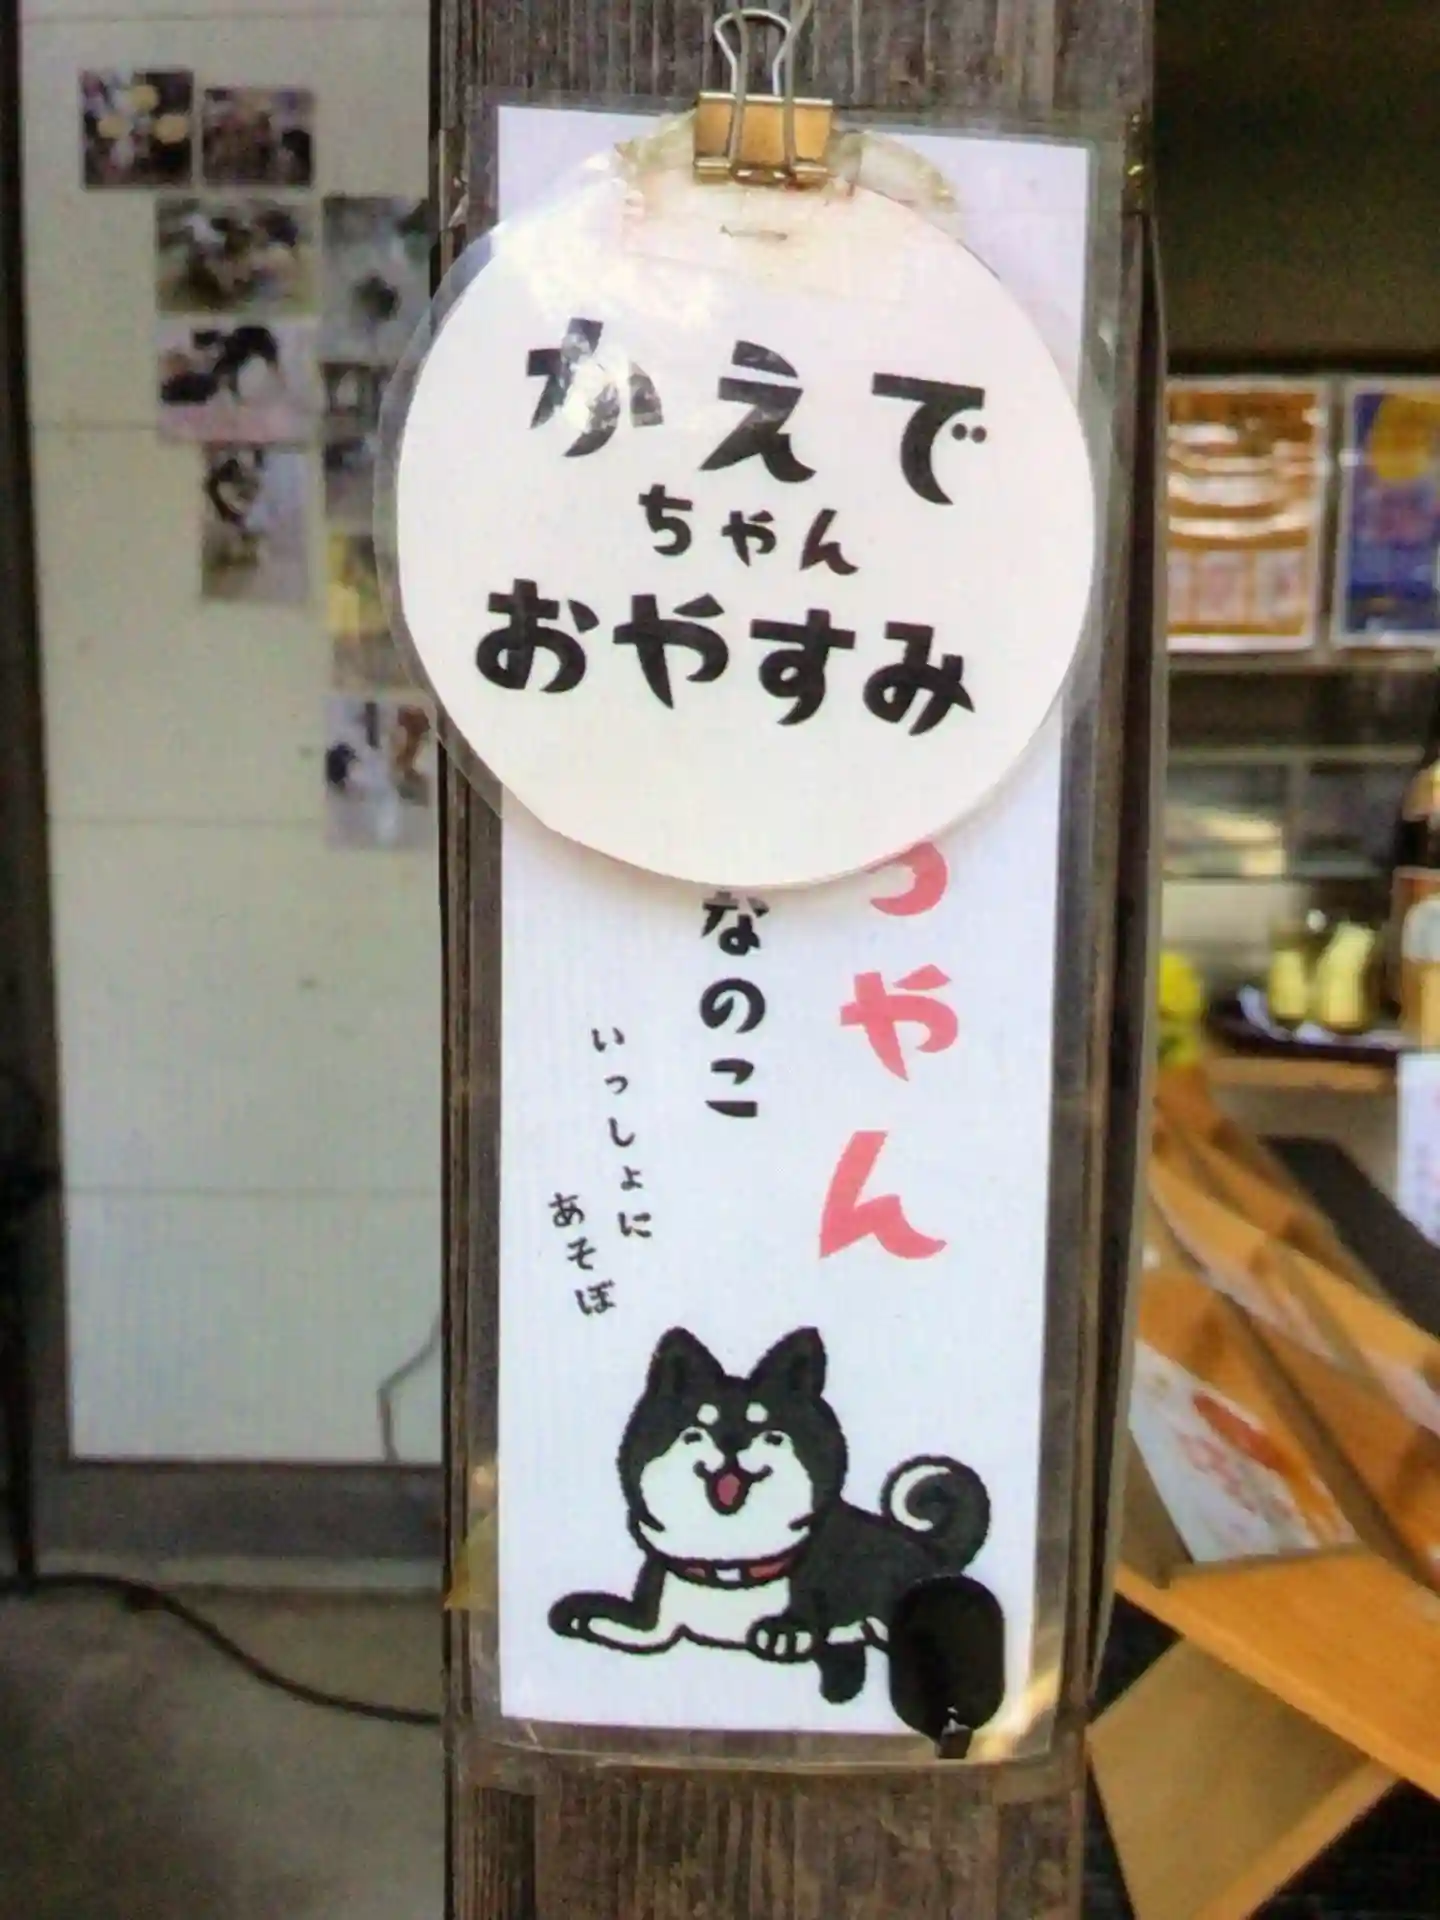 かえで
ちゃん
おやすみ
ゃん
なのこ
いっしょに
あそぼ